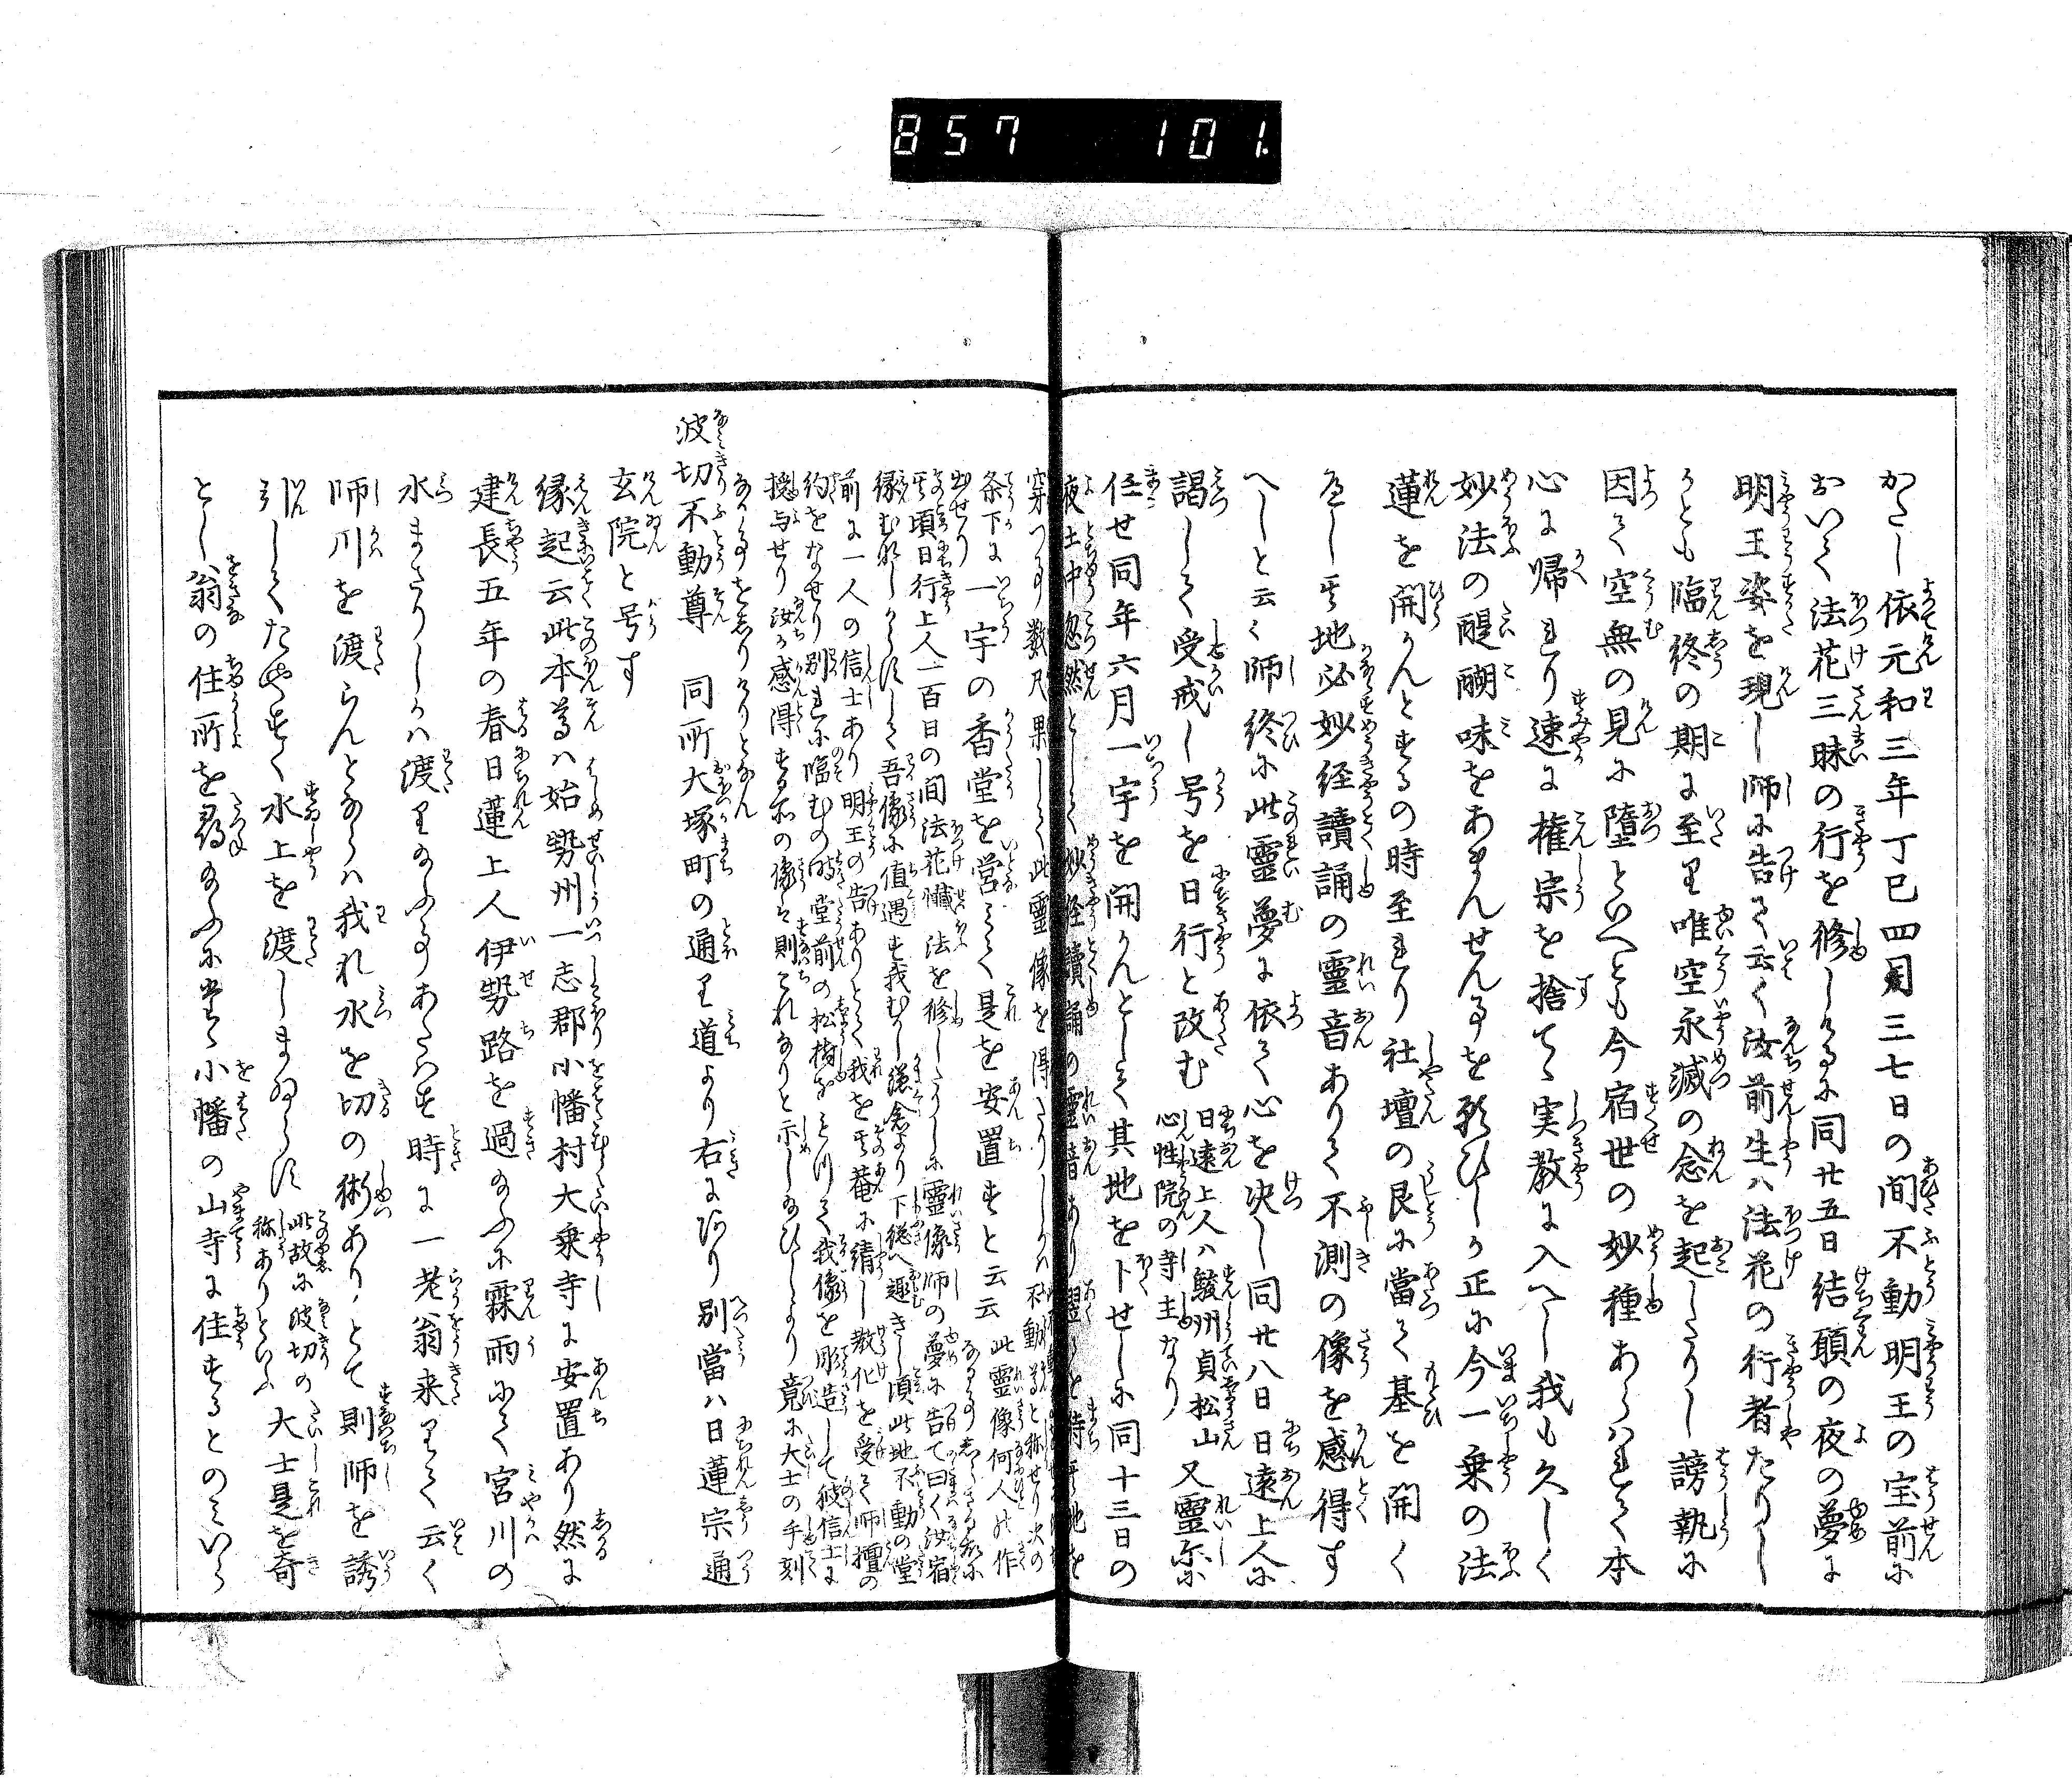 857 101.
かたし依元和三年丁巳四月三七日の間不動明王の宝前に
おいて法花三昧の行を修しけるに同廿五日結願の夜の夢に
明王姿を現し師に告て云く汝前生ハ法花の行者たりし
かとも臨終の期に至り唯空永滅の念を起したりし謗執に
因て空無の見に墮といへとも今宿世の妙種あらハれて本
心に帰れり速に権宗を捨てゝ実教に入へし我も久しく
妙法の醍醐味をあまんせん事を願ひしか正に今一乗の法
蓮を開かんとするの時至れり社壇の艮に當て基を開く
へし其地必妙経讀誦の靈音ありて不測の像を感得す
へしと云く師終に此靈夢に依て心を决し同廿八日日遠上人に
謁して受戒し号を日行と改む
日遠上人ハ駿州貞松山
心性院の寺主なり
又靈示に
任せ同年六月一宇を開かんとして其地を卜せしに同十三日の
夜土中忽然として妙経讀誦の靈音あり翌と待て其地を
穿つ事数尺果して此靈像を得たりしかハ不動尊と称せり次の
条下に
出せり
一宇の香堂を営ミて是を安置すと云云
此靈像何人の作
なる事しらさる故に
其頃日行上人一百日の間法花懺法を修したりしに靈像師の夢に告て曰く汝宿
縁むなしからすして吾像に値遇す我むかし鎌倉より下総へ趣きし頃此地不動の堂
前に一人の信士あり明王の告ありとて我を其菴に請し教化を受て師檀の
約をなせり別れに臨むの時堂前の松樹をとりて我像を彫造して彼信士に
授与せり汝か感得する所の像ハ則これなりと示し給ひしより竟に大士の手刻
なる事をしりけりとなん
波切不動尊 同所大塚町の通り道より右にあり別當ハ日蓮宗通
玄院と号す
縁起云此本尊ハ始勢州一志郡小幡村大乗寺に安置あり然に
建長五年の春日蓮上人伊勢路を過給ふに霖雨にて宮川の
水まさりしかハ渡り給ふ事あたハす時に一老翁来りて云く
師川を渡らんとならハ我れ水を切の術ありとて則師を誘
引してたやすく水上を渡しまゐらす
此故に波切の
称ありといふ
大士是を奇
とし翁の住所を尋給ふに豈小幡の山寺に住するとのミいら